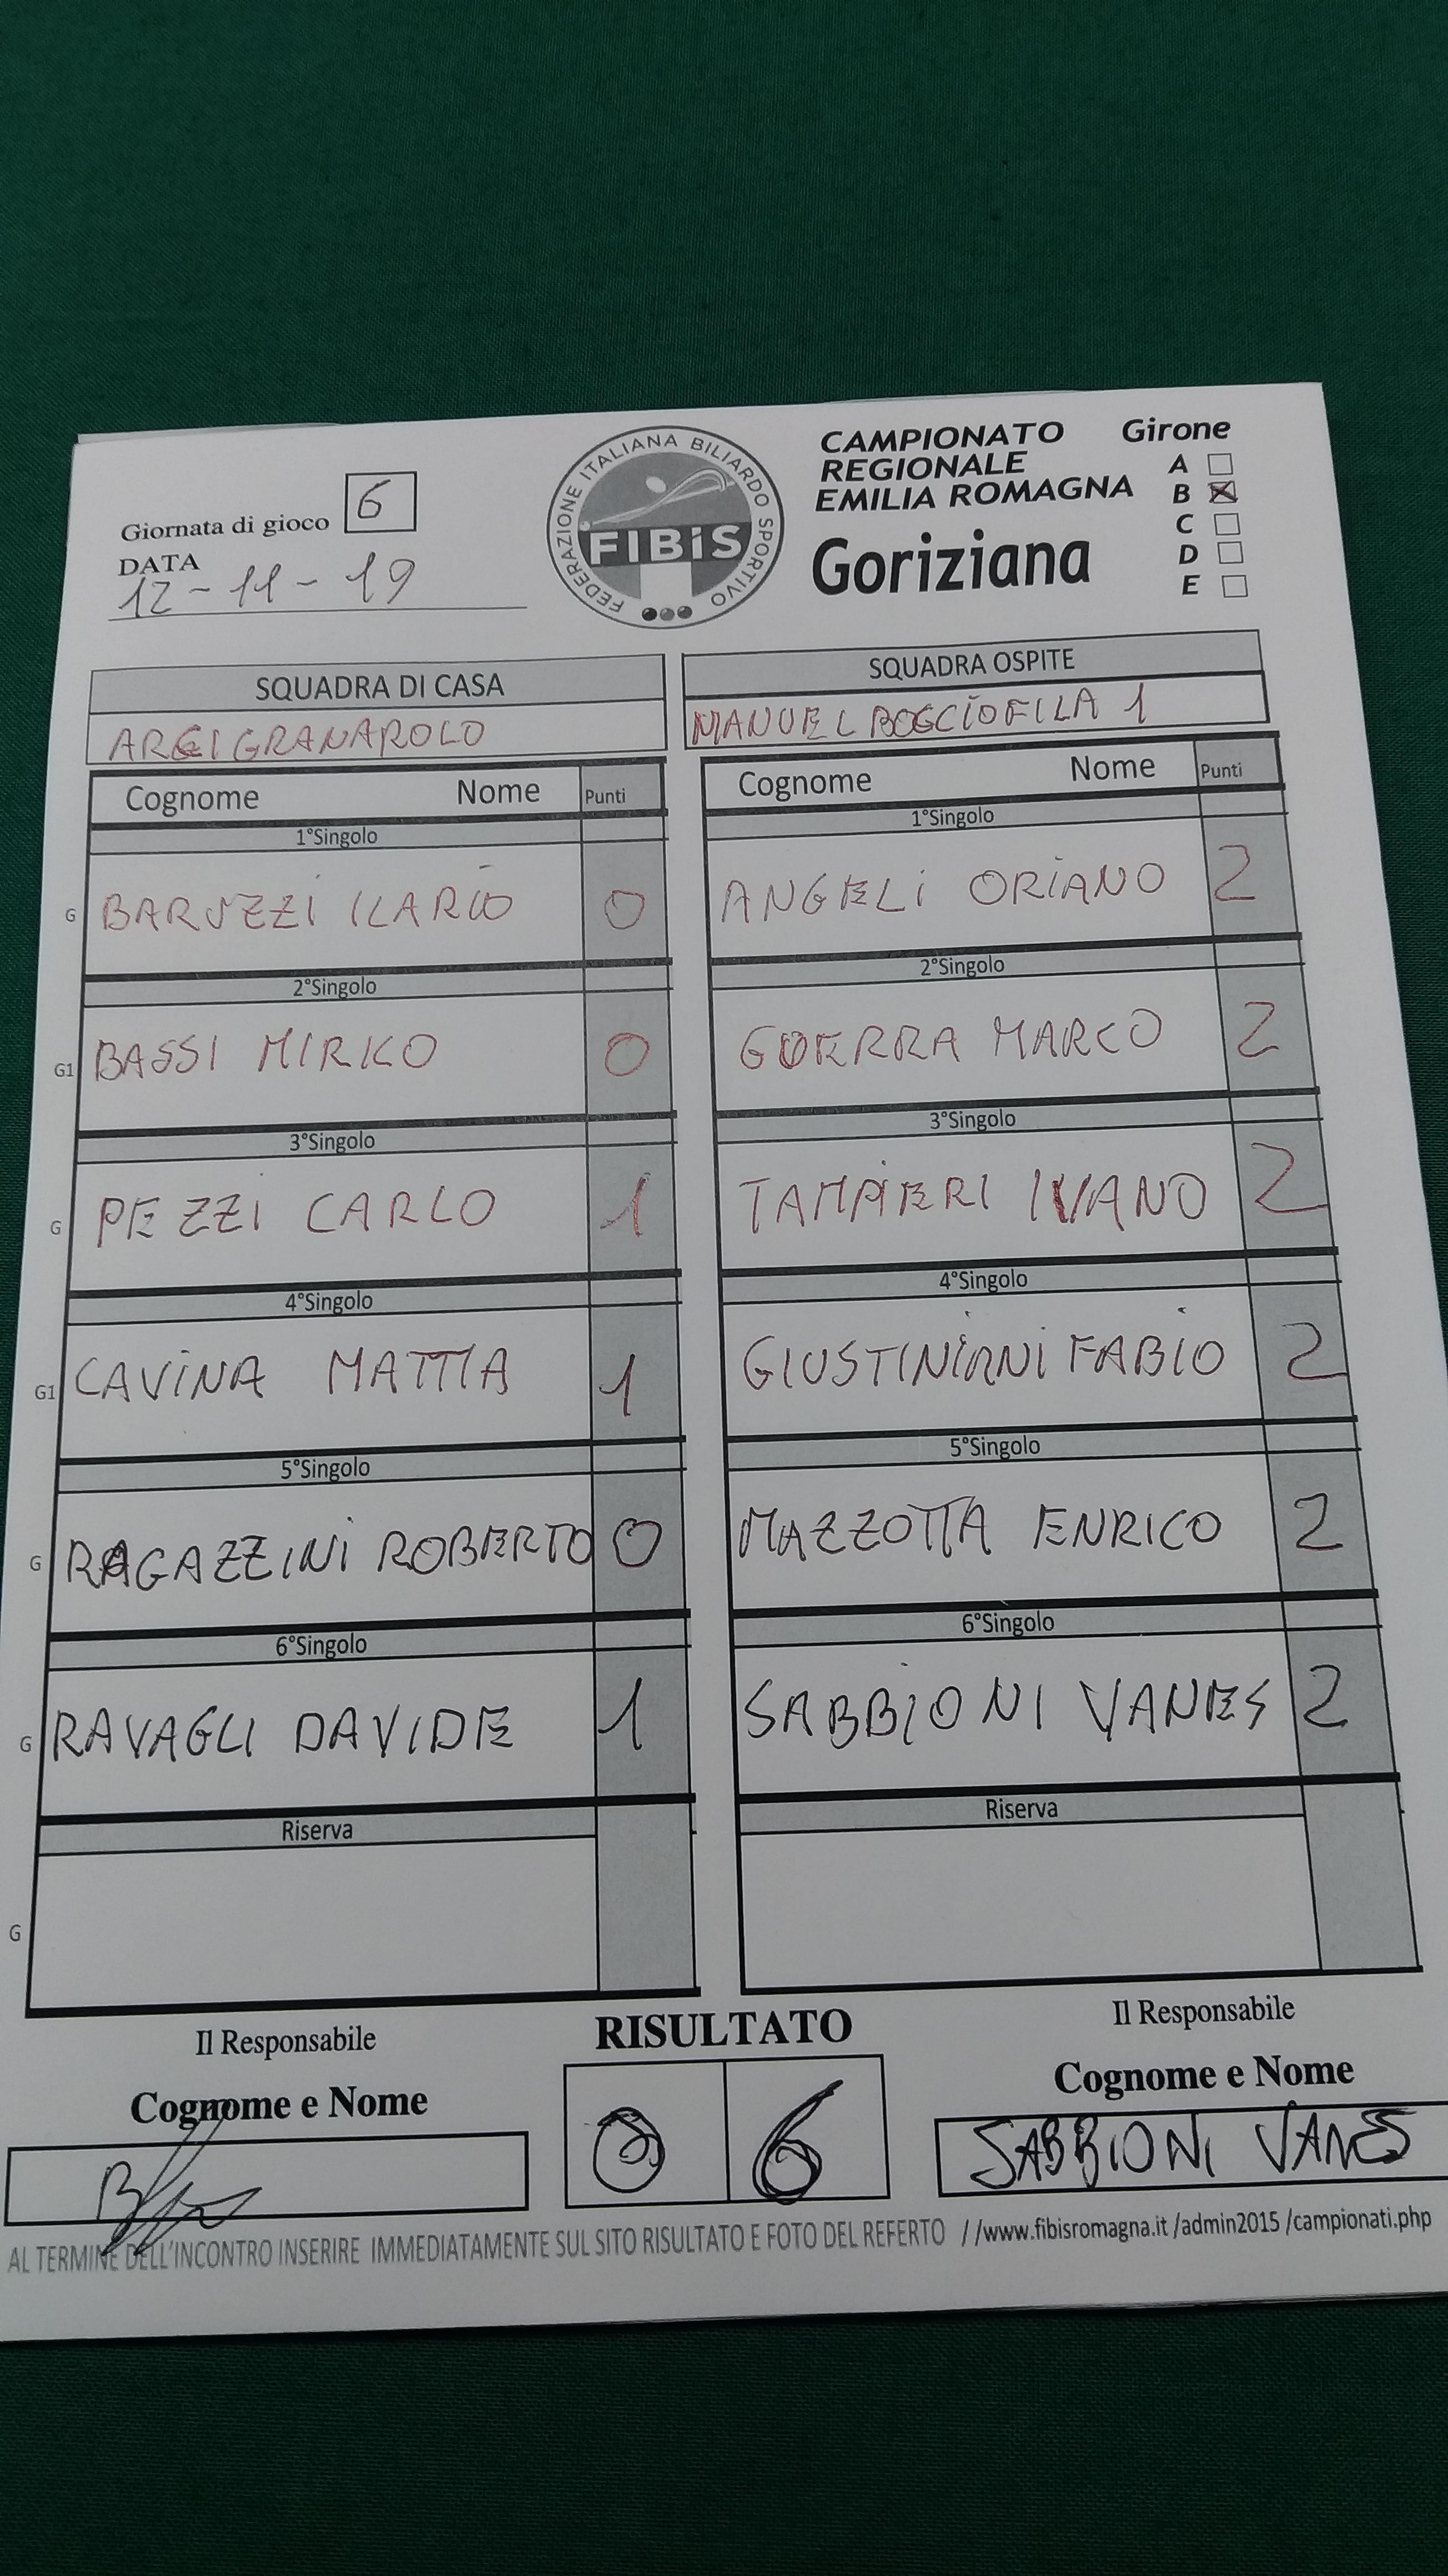 Giornata di gioco 6
DATA
12-11-19
FEDERAZIONE ITALIANA BILIARDO SPORTIVO
FIBiS
CAMPIONATO
REGIONALE
EMILIA ROMAGNA
Goriziana
Girone
A
B
C
D
E
SQUADRA DI CASA
ARCI GRANAROLO
SQUADRA OSPITE
MANUEL BOCCIOFILA 1
Cognome Nome Punti
Cognome Nome Punti
1°Singolo
1°Singolo
G BARUZZI ILARIO 0
ANGELI ORIANO 2
2°Singolo
2°Singolo
G1 BASSI MIRKO 0
GUERRA MARCO 2
3°Singolo
3°Singolo
G PEZZI CARLO 1
TAMPIERI IVANO 2
4°Singolo
4°Singolo
G1 CAVINA MATTIA 1
GIUSTINIANI FABIO 2
5°Singolo
5°Singolo
G RAGAZZINI ROBERTO 0
MAZZOTTA ENRICO 2
6°Singolo
6°Singolo
G RAVAGLI DAVIDE 1
SABBIONI VANES 2
Riserva
Riserva
G
Il Responsabile
Cognome e Nome
RISULTATO
0 6
Il Responsabile
Cognome e Nome
SABBIONI VANES
AL TERMINE DELL'INCONTRO INSERIRE IMMEDIATAMENTE SUL SITO RISULTATO E FOTO DEL REFERTO //www.fibisromagna.it /admin2015 /campionati.php